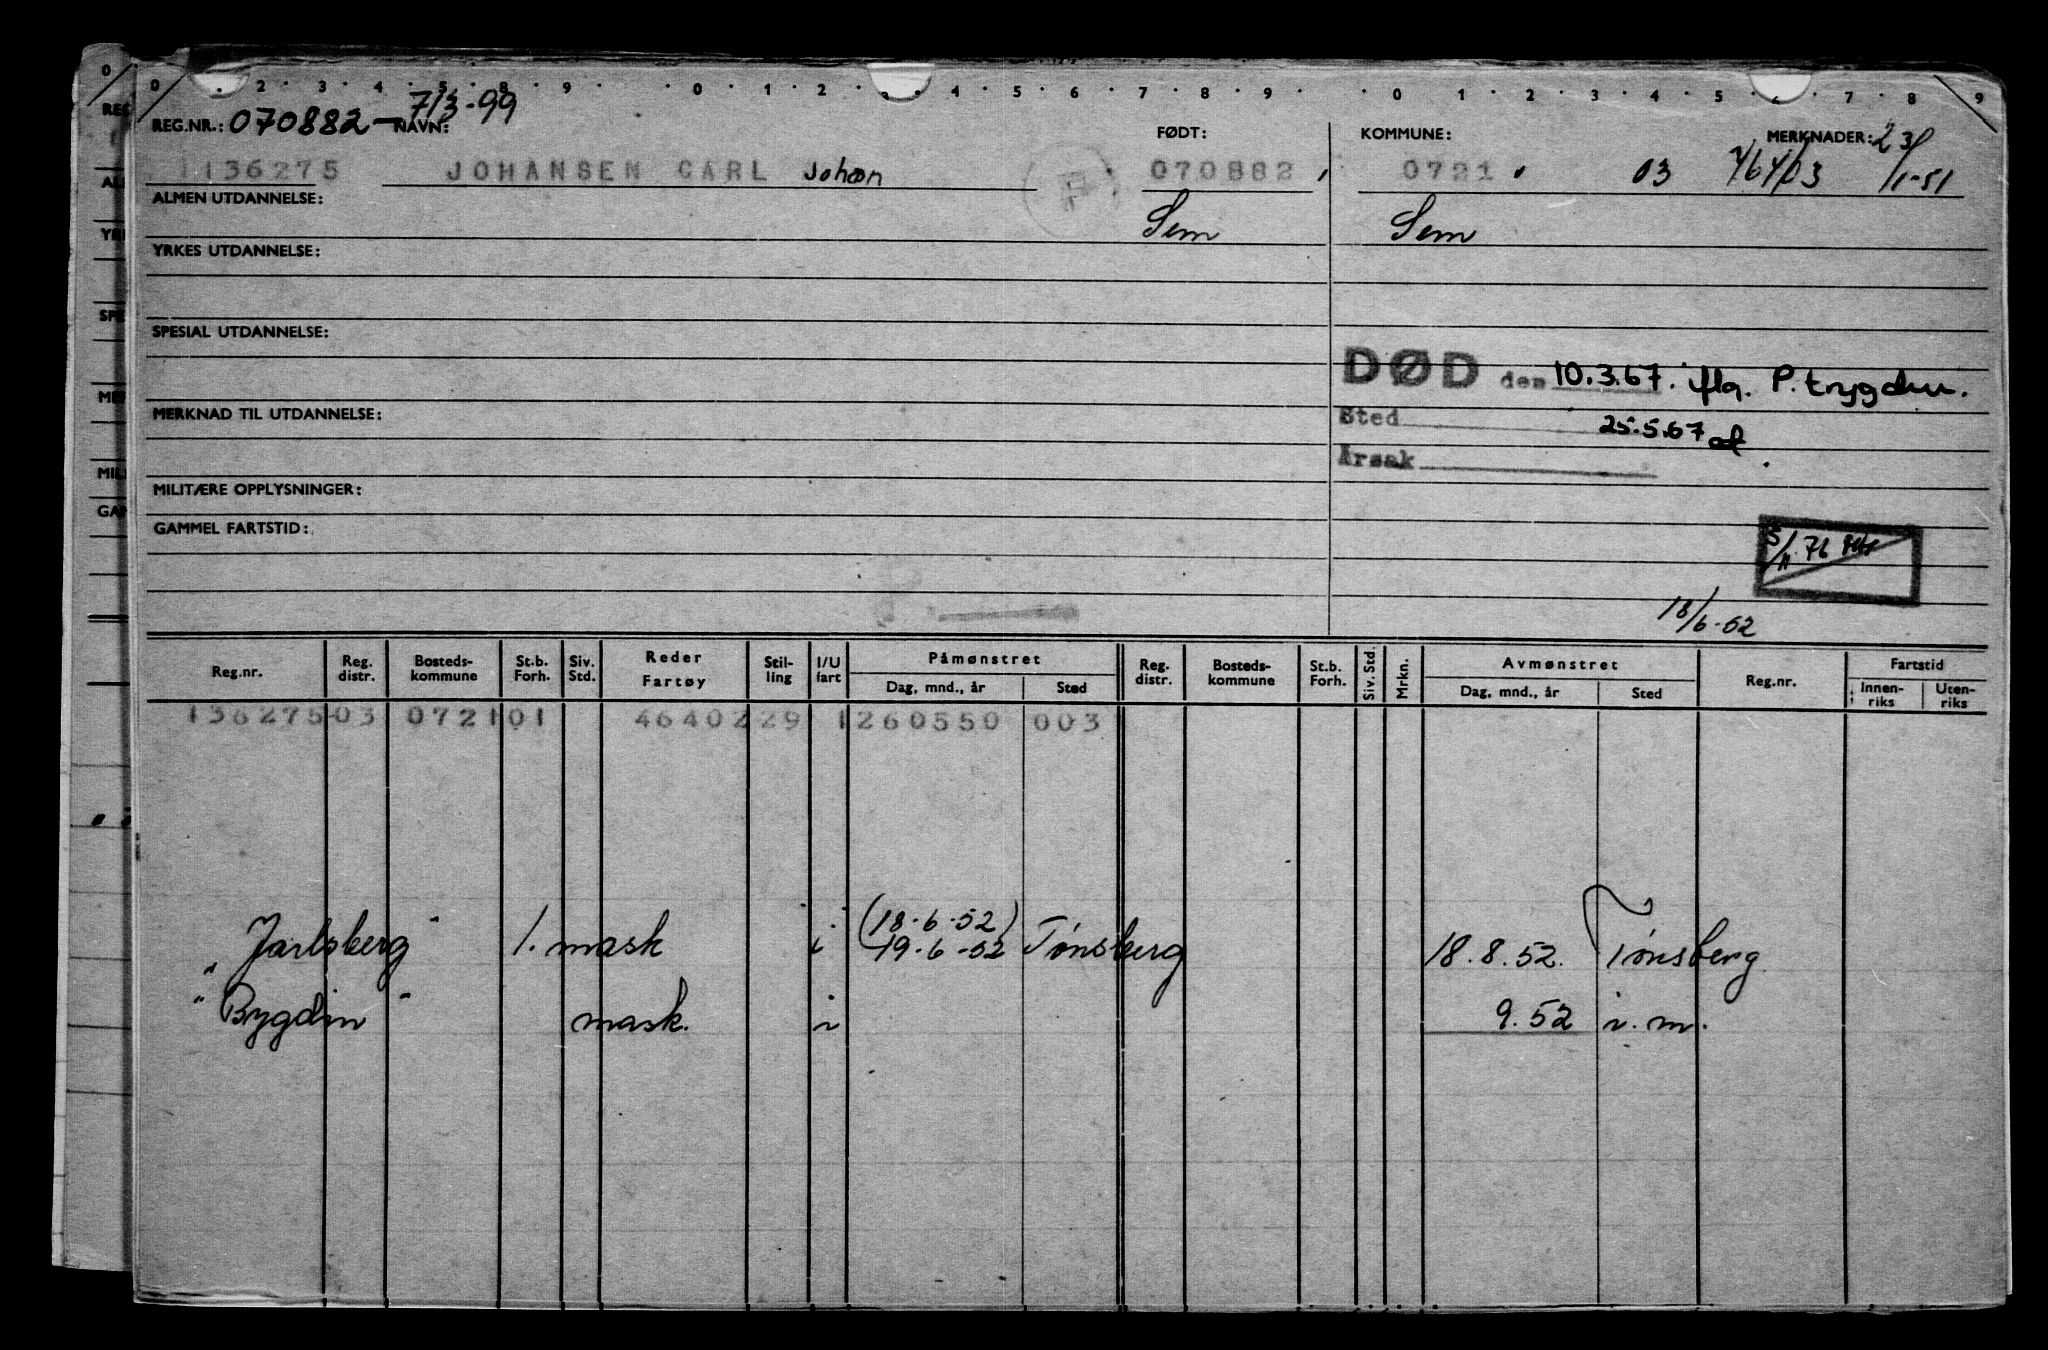 0 . 2 . 3 . 4 . 5 . 8 . 9 . . 0 . 1 . 2 . . 4 . 5 . 6 . 7 . 8 . 9 . . 0 . 1 . 2 . 3 . 4 . 5 . 6 . 7 . 8 . 9
REG.NR.: 070882 - 713-99 NAVN: FØDT: KOMMUNE: MERKNADER: 23/1-51
1136275 JOHANSEN CARL Johan 070882 0721 03
ALMEN UTDANNELSE: Sem Sem
YRKES UTDANNELSE:
SPESIAL UTDANNELSE:
DØD den 10.3.67. iflg. P.trygden.
MERKNAD TIL UTDANNELSE:
Sted 25.5.67
Årsak
MILITÆRE OPPLYSNINGER:
GAMMEL FARTSTID:
5/11 76
18/6-52
Reg.nr. Reg. distr. Bosteds- kommune St.b. Forh. Siv. Std. Reder Fartøy Stil- ling I/U fart Påmønstret Dag, mnd., år Sted Reg. distr. Bosteds- kommune St.b. Forh. Siv. Std. Mrkn. Avmønstret Dag, mnd., år Sted Reg.nr. Fartstid Innen- riks Uten- riks
136275 03 0721 01 4640229 1260550 003
(18-6-52)
"Jarlsberg" 1. mask i 19-6-52 Tønsberg 18.8.52. Tønsberg
"Bygdin" mask. i 9.52 i.m.